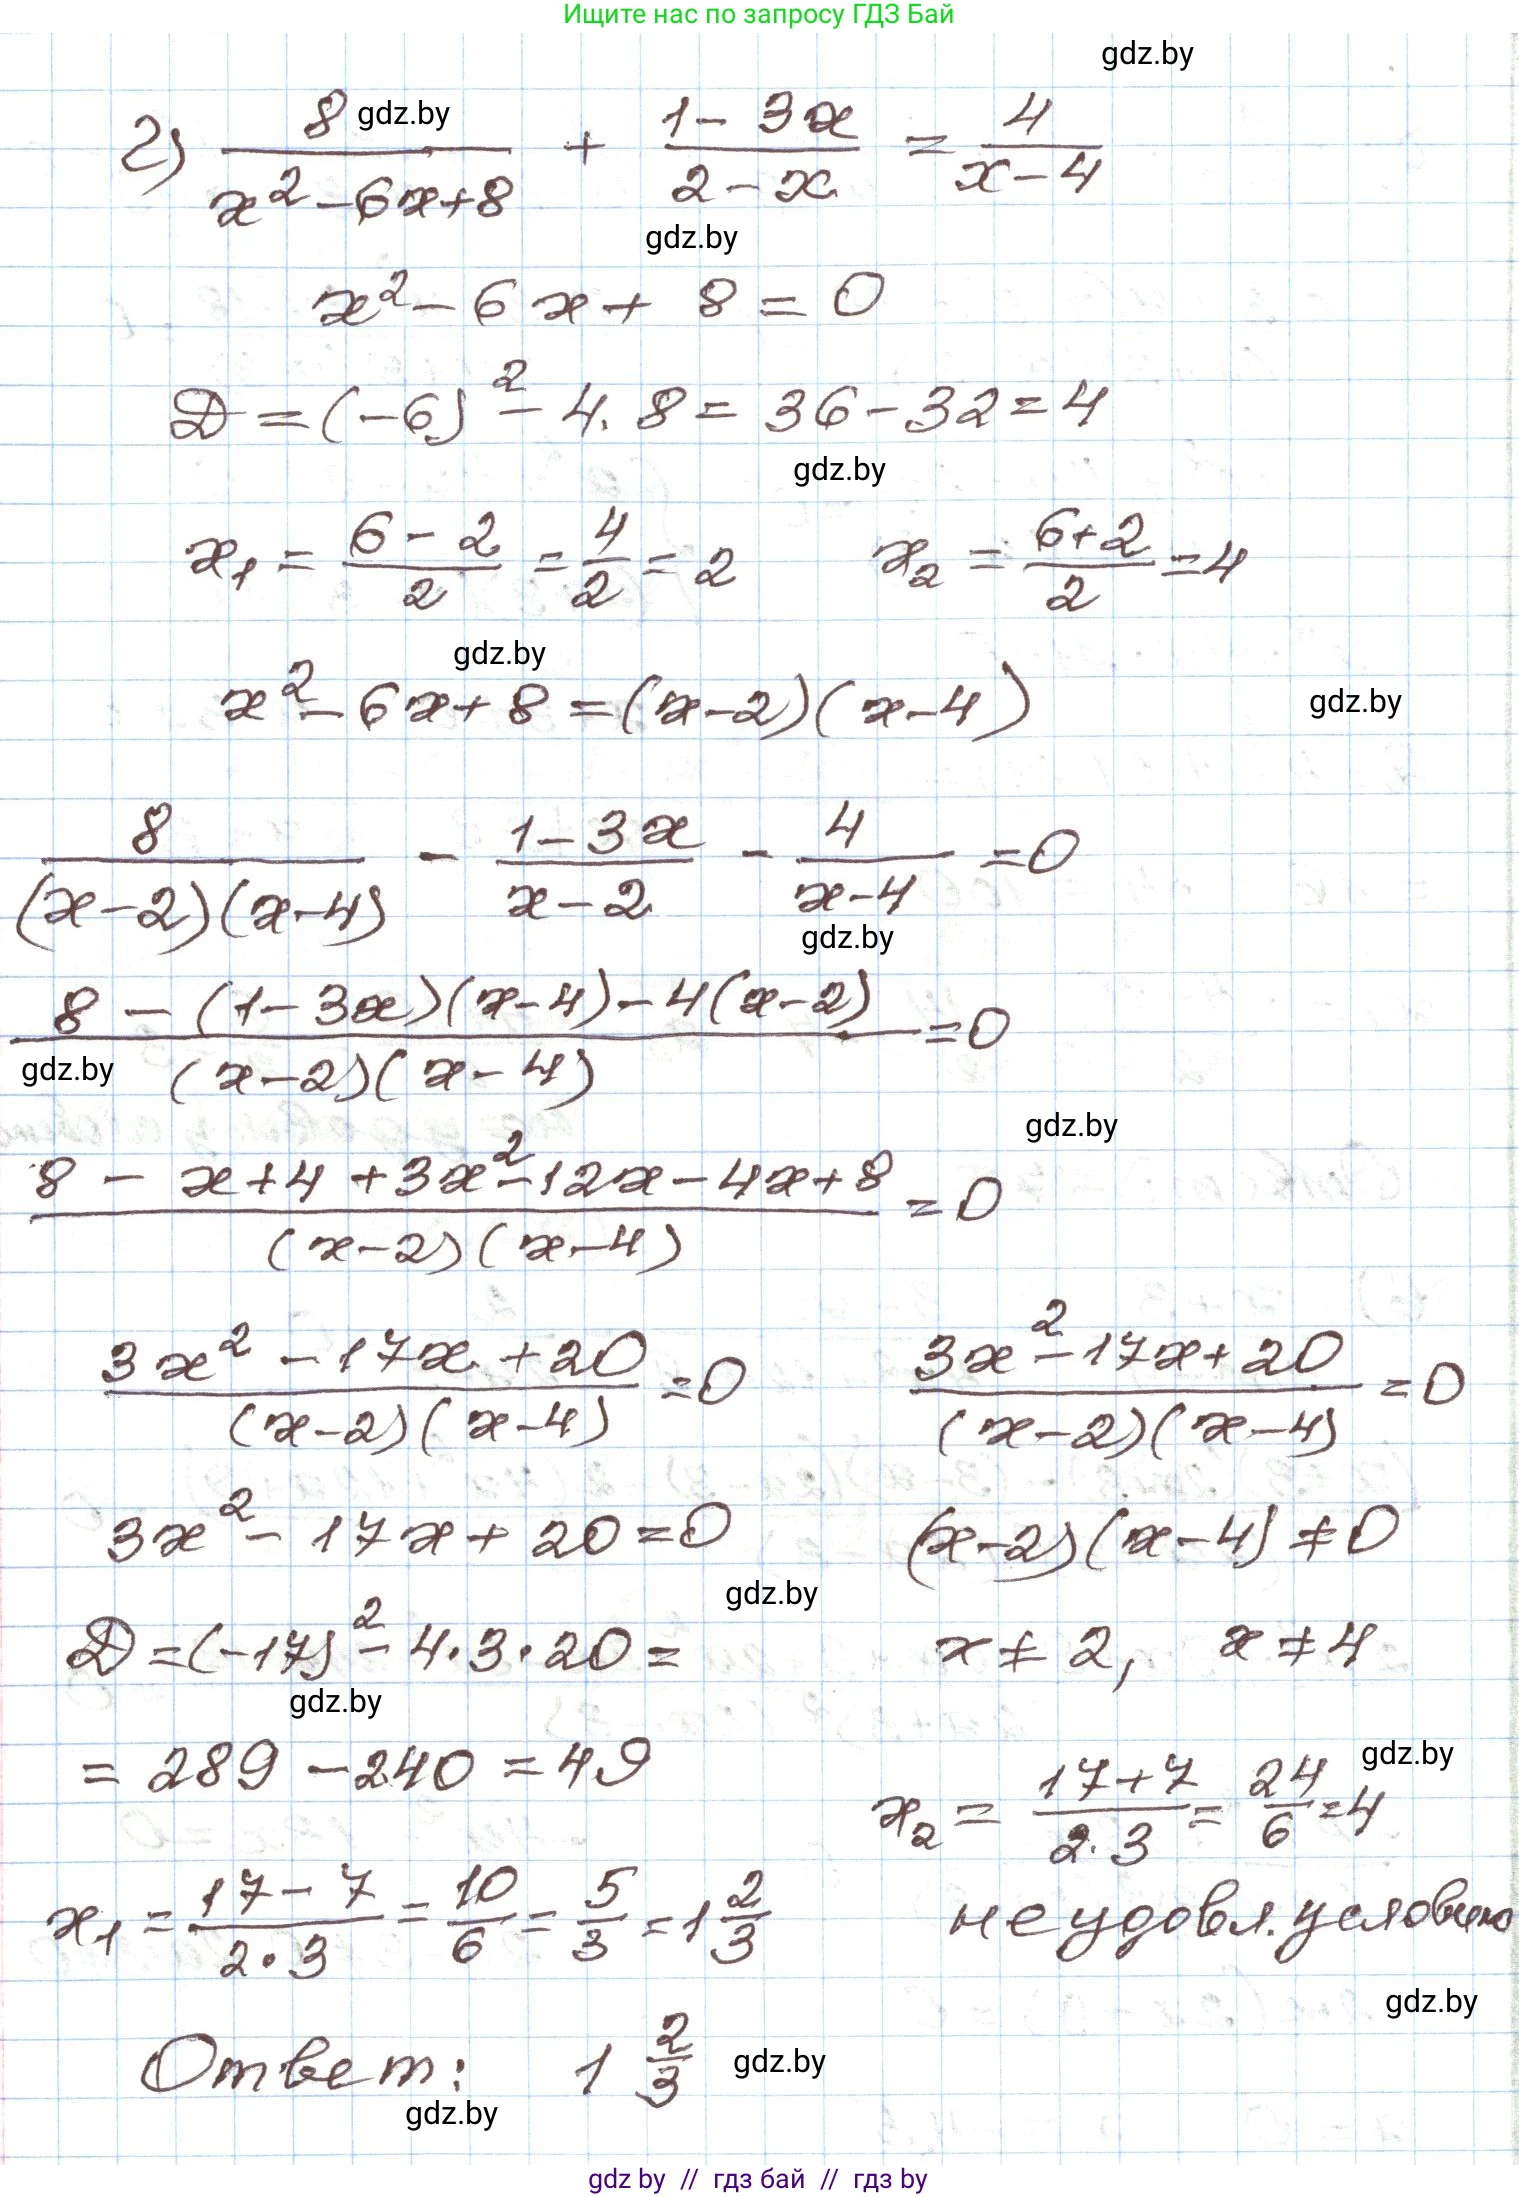 Ищите нас по запросу ГДЗ Бай
gdz.by
г) 8/(x²-6x+8) + (1-3x)/(2-x) = 4/(x-4)
gdz.by
gdz.by
x²-6x+8=0
Д=(-6)²-4·8=36-32=4
gdz.by
x₁=(6-2)/2=4/2=2 x₂=(6+2)/2=4
gdz.by
x²-6x+8=(x-2)(x-4)
gdz.by
8/((x-2)(x-4)) - (1-3x)/(x-2) - 4/(x-4) =0
gdz.by
(8-(1-3x)(x-4)-4(x-2))/((x-2)(x-4)) =0
gdz.by
gdz.by
(8-x+4+3x²-12x-4x+8)/((x-2)(x-4)) =0
(3x²-17x+20)/((x-2)(x-4)) =0 (3x²-17x+20)/((x-2)(x-4)) =0
3x²-17x+20=0 (x-2)(x-4)≠0
gdz.by
Д=(-17)²-4·3·20= x≠2, x≠4
gdz.by
=289-240=49
gdz.by
x₂=(17+7)/(2·3)=24/6=4
x₁=(17-7)/(2·3)=10/6=5/3=1 2/3 не удовл. условию
gdz.by
Ответ: 1 2/3
gdz.by
gdz.by
gdz by // гдз бай // гдз by